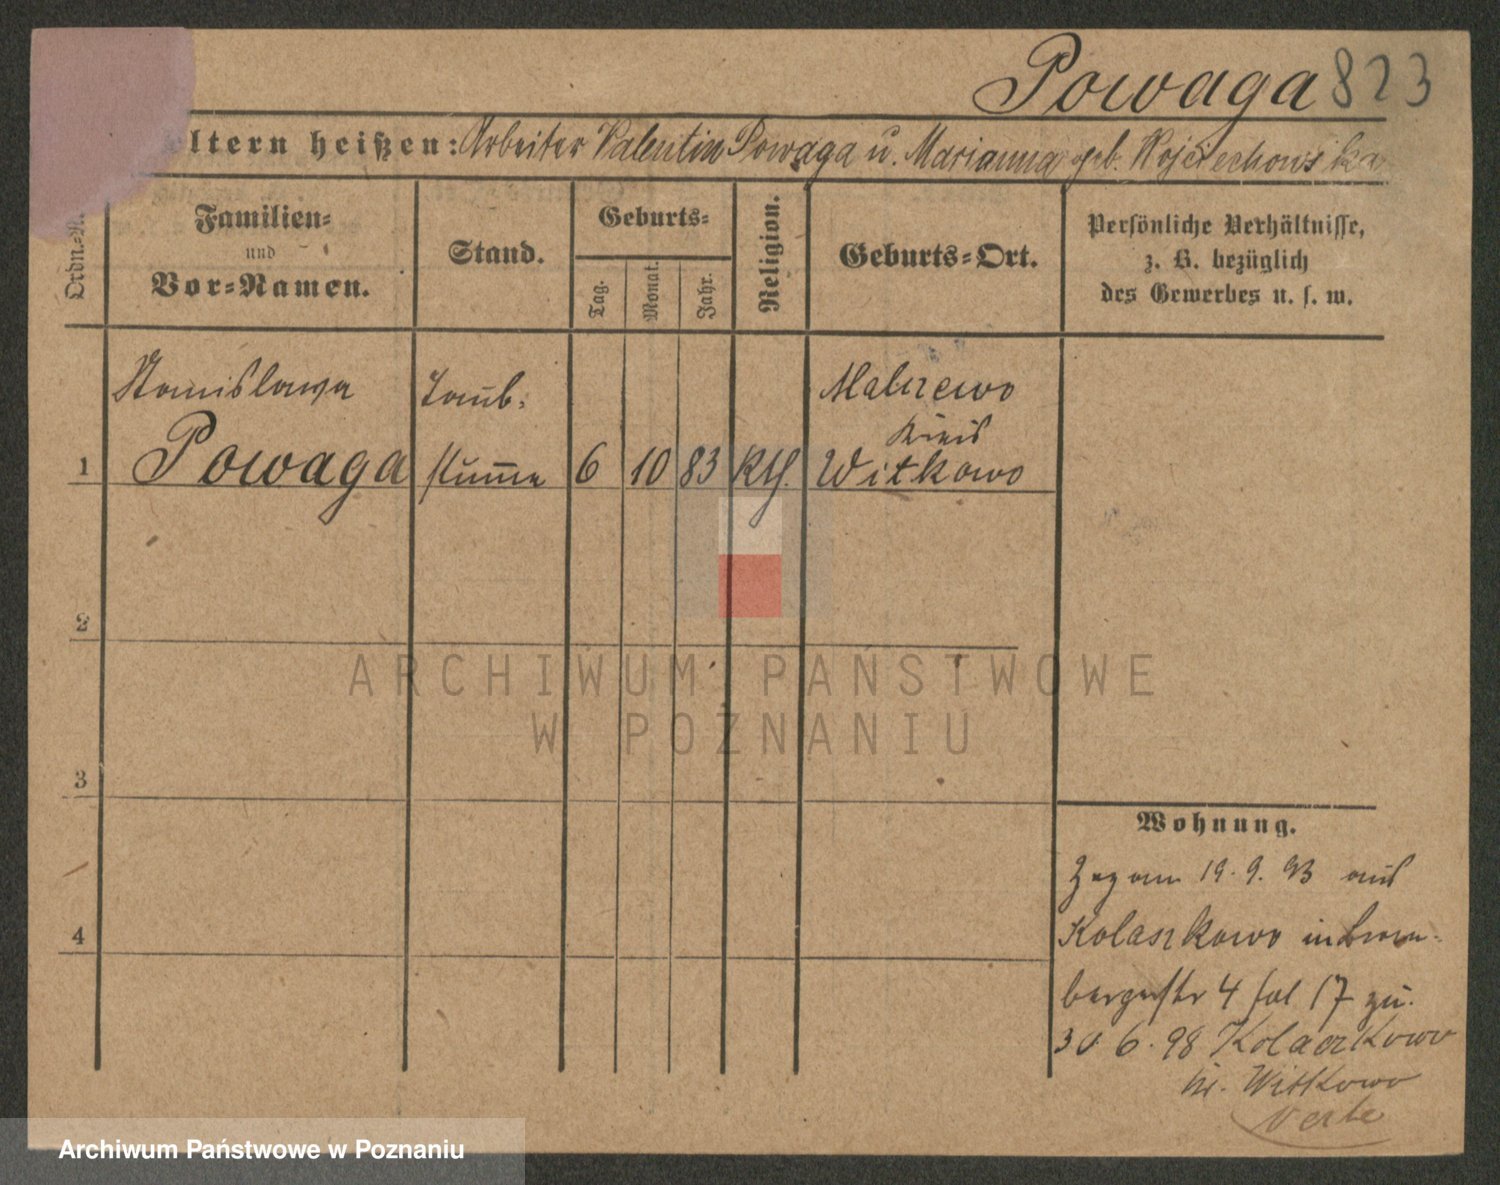 Powaga 823
ltern heißen: Arbeiter Valentin Powaga u. Marianna geb. Wojciechowska
Ordn.-N.
Familien-
und
Vor-Namen.
Stand.
Geburts-
Tag.
Monat.
Jahr.
Religion.
Geburts-Ort.
Persönliche Verhältnisse,
z. B. bezüglich
des Gewerbes u. s. w.
Stanislawa
Powaga
Taub-
stumme
1
6
10
83
Kth.
Malczewo
Kreis
Witkowo
2
3
4
ARCHIWUM PAŃSTWOWE
W POZNANIU
Wohnung.
Zog am 19. 9. 93 aus
Kolaszkowo in
4 17 zu.
30 6. 98 Kolaczkowo
Witkowo
Archiwum Państwowe w Poznaniu